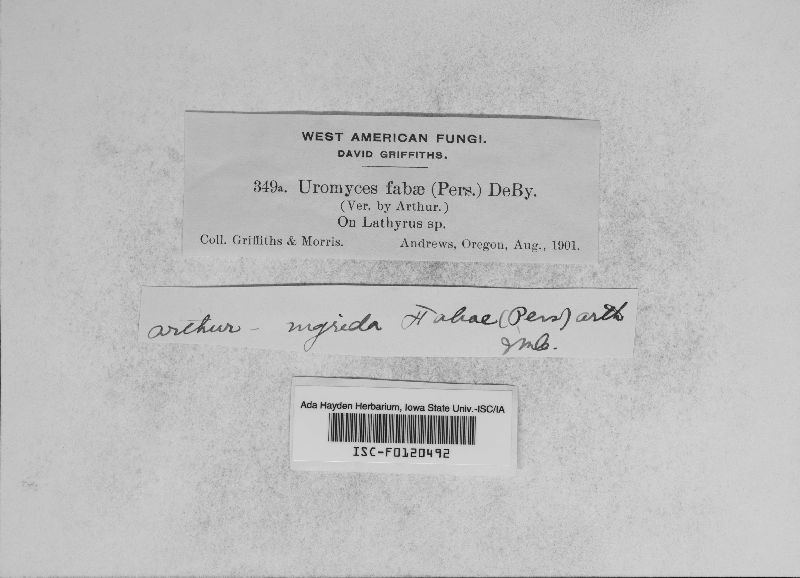 WEST AMERICAN FUNGI.
DAVID GRIFFITHS.
349a. Uromyces fabæ (Pers.) DeBy.
(Ver. by Arthur.)
On Lathyrus sp.
Coll. Griffiths & Morris. Andrews, Oregon, Aug., 1901.
arthur - Fabae (Pers) arth
Ada Hayden Herbarium, Iowa State Univ.-ISC/IA
ISC-F0120492